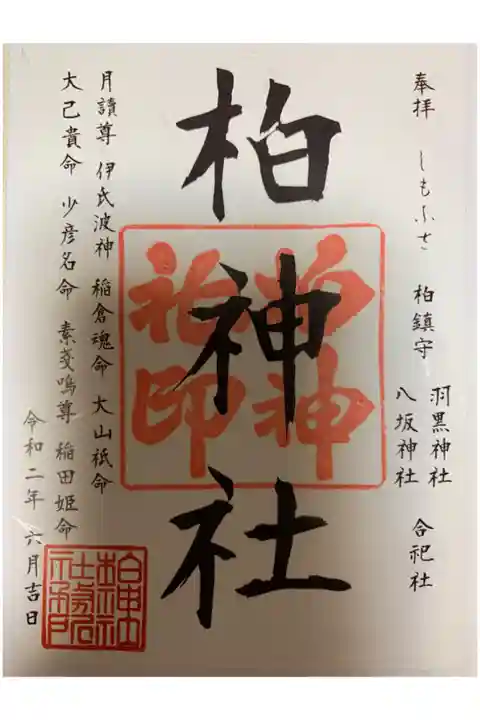 奉拝 しもふさ 柏鎮守 羽黒神社 合祀社
八坂神社
柏神社
柏神社印
月讀尊 伊氏波神 稲倉魂命 大山祇命
大己貴命 少彦名命 素戔嗚尊 稲田姫命
令和二年 六月吉日
柏神社
社務所